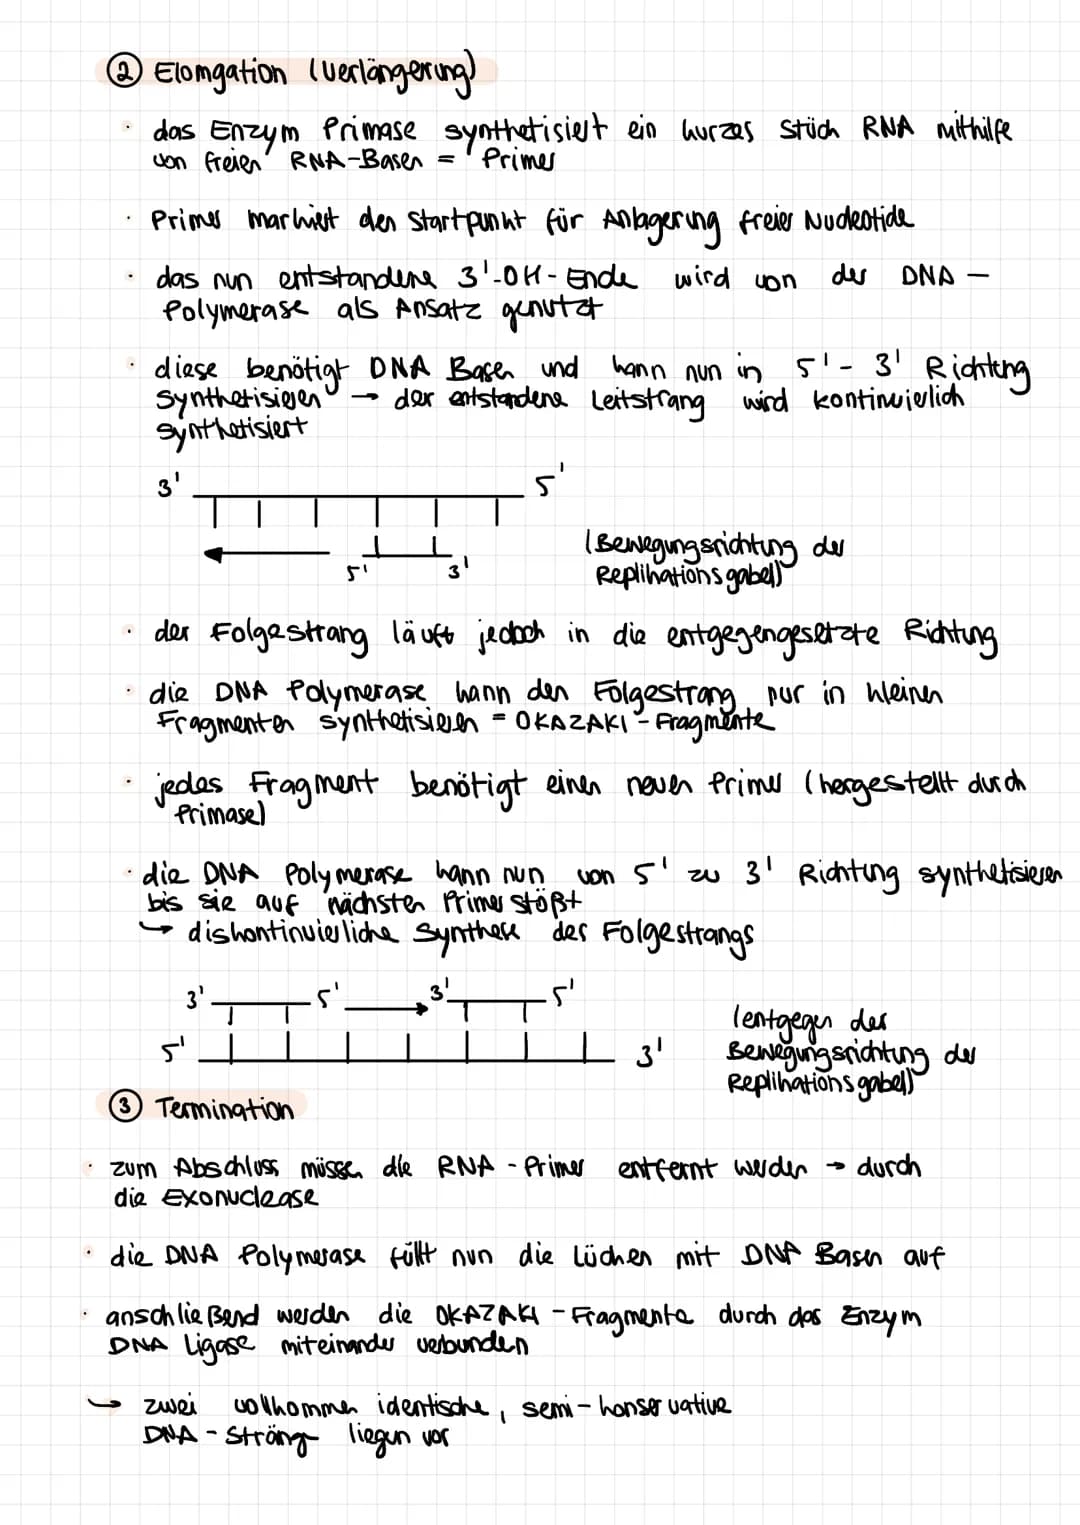 ② Elongation (Verlängerung)
· das Enzym Primase synthetisiert ein kurzes Stück RNA mithilfe
von freien RNA-Basen = Primer
· Primer markiert den Startpunkt für Anlagerung freier Nucleotide
· das nun entstandene 3'-OH-Ende wird von der DNA -
Polymerase als Ansatz genutzt
· diese benötigt DNA Basen und kann nun in 5' - 3' Richtung
synthetisieren → der entstandene Leitstrang wird kontinuierlich
synthetisiert
3' 5'
5' 3'
(Bewegungsrichtung der
Replikationsgabel)
· der Folgestrang läuft jedoch in die entgegengesetzte Richtung
· die DNA Polymerase kann den Folgestrang nur in kleinen
Fragmenten synthetisieren = OKAZAKI - Fragmente
· jedes Fragment benötigt einen neuen Primer (hergestellt durch
Primase)
· die DNA Polymerase kann nun von 5' zu 3' Richtung synthetisieren
bis sie auf nächsten Primer stößt
↳ diskontinuierliche Synthese des Folgestrangs
3' 5' 3' 5'
5' 3'
(entgegen der
Bewegungsrichtung der
Replikationsgabel)
③ Termination
· zum Abschluss müssen die RNA - Primer entfernt werden → durch
die Exonuclease
· die DNA Polymerase füllt nun die Lücken mit DNA Basen auf
· anschließend werden die OKAZAKI - Fragmente durch das Enzym
DNA Ligase miteinander verbunden
↳ zwei vollkommen identische, semi-konservative
DNA - Stränge liegen vor